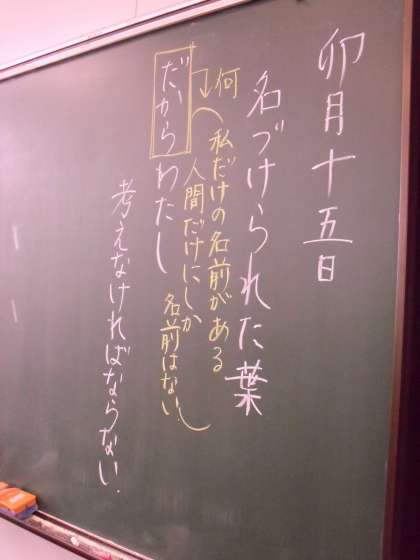 卯月十五日
名づけられた葉
何
私だけの名前がある
人間だけにしか
名前はない。
だからわたし
考えなければならない。